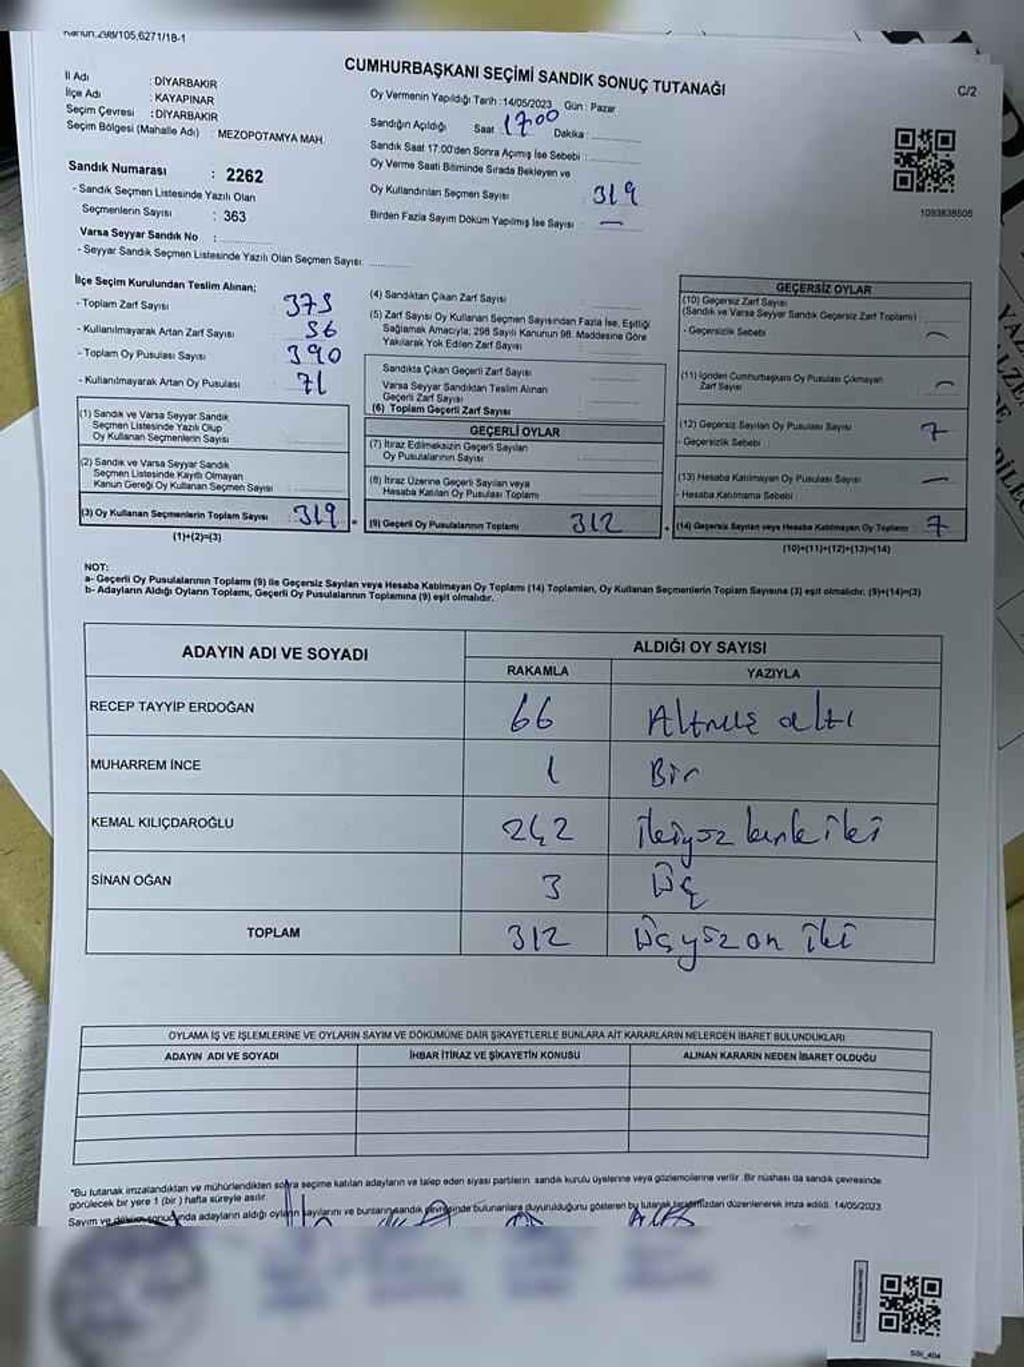 Kanun:298/105,6271/18-1
CUMHURBAŞKANI SEÇİMİ SANDIK SONUÇ TUTANAĞI
C/2
İl Adı : DİYARBAKIR
İlçe Adı : KAYAPINAR
Seçim Çevresi : DİYARBAKIR
Seçim Bölgesi (Mahalle Adı) : MEZOPOTAMYA MAH.
Sandık Numarası : 2262
- Sandık Seçmen Listesinde Yazılı Olan
Seçmenlerin Sayısı : 363
Varsa Seyyar Sandık No :
- Seyyar Sandık Seçmen Listesinde Yazılı Olan Seçmen Sayısı:
Oy Vermenin Yapıldığı Tarih : 14/05/2023 Gün : Pazar
Sandığın Açıldığı Saat : 17:00 Dakika :
Sandık Saat 17:00'den Sonra Açımış İse Sebebi :
Oy Verme Saati Bitiminde Sırada Bekleyen ve
Oy Kullandırılan Seçmen Sayısı : 319
Birden Fazla Sayım Döküm Yapılmış İse Sayısı : —
1093838506
İlçe Seçim Kurulundan Teslim Alınan;
- Toplam Zarf Sayısı 375
- Kullanılmayarak Artan Zarf Sayısı 56
- Toplam Oy Pusulası Sayısı 390
- Kullanılmayarak Artan Oy Pusulası 71
(1) Sandık ve Varsa Seyyar Sandık
Seçmen Listesinde Yazılı Olup
Oy Kullanan Seçmenlerin Sayısı
(2) Sandık ve Varsa Seyyar Sandık
Seçmen Listesinde Kayıtlı Olmayan
Kanun Gereği Oy Kullanan Seçmen Sayısı
(3) Oy Kullanan Seçmenlerin Toplam Sayısı 319
(1)+(2)=(3)
(4) Sandıktan Çıkan Zarf Sayısı
(5) Zarf Sayısı Oy Kullanan Seçmen Sayısından Fazla İse, Eşitliği
Sağlamak Amacıyla; 298 Sayılı Kanunun 98. Maddesine Göre
Yakılarak Yok Edilen Zarf Sayısı
Sandıkta Çıkan Geçerli Zarf Sayısı
Varsa Seyyar Sandıktan Teslim Alınan
Geçerli Zarf Sayısı
(6) Toplam Geçerli Zarf Sayısı
GEÇERLİ OYLAR
(7) İtiraz Edilmeksizin Geçerli Sayılan
Oy Pusulalarının Sayısı
(8) İtiraz Üzerine Geçerli Sayılan veya
Hesaba Katılan Oy Pusulası Toplamı
(9) Geçerli Oy Pusulalarının Toplamı 312
GEÇERSİZ OYLAR
(10) Geçersiz Zarf Sayısı
(Sandık ve Varsa Seyyar Sandık Geçersiz Zarf Toplamı)
- Geçersizlik Sebebi —
(11) İçinden Cumhurbaşkanı Oy Pusulası Çıkmayan
Zarf Sayısı —
(12) Geçersiz Sayılan Oy Pusulası Sayısı 7
- Geçersizlik Sebebi :
(13) Hesaba Katılmayan Oy Pusulası Sayısı —
- Hesaba Katılmama Sebebi :
(14) Geçersiz Sayılan veya Hesaba Katılmayan Oy Toplamı 7
(10)+(11)+(12)+(13)=(14)
NOT:
a- Geçerli Oy Pusulalarının Toplamı (9) ile Geçersiz Sayılan veya Hesaba Katılmayan Oy Toplamı (14) Toplamları, Oy Kullanan Seçmenlerin Toplam Sayısına (3) eşit olmalıdır. (9)+(14)=(3)
b- Adayların Aldığı Oyların Toplamı, Geçerli Oy Pusulalarının Toplamına (9) eşit olmalıdır.
ADAYIN ADI VE SOYADI ALDIĞI OY SAYISI
RAKAMLA YAZIYLA
RECEP TAYYİP ERDOĞAN 66 Altmış altı
MUHARREM İNCE 1 Bir
KEMAL KILIÇDAROĞLU 242 ikiyüz kırk iki
SİNAN OĞAN 3 Üç
TOPLAM 312 Üçyüz on iki
OYLAMA İŞ VE İŞLEMLERİNE VE OYLARIN SAYIM VE DÖKÜMÜNE DAİR ŞİKAYETLERLE BUNLARA AİT KARARLARIN NELERDEN İBARET BULUNDUKLARI
ADAYIN ADI VE SOYADI İHBAR İTİRAZ VE ŞİKAYETİN KONUSU ALINAN KARARIN NEDEN İBARET OLDUĞU
*Bu tutanak imzalandıktan ve mühürlendikten sonra seçime katılan adayların ve talep eden siyasi partilerin sandık kurulu üyelerine veya gözlemcilerine verilir. Bir nüshası da sandık çevresinde
görülecek bir yere 1 (bir ) hafta süreyle asılır.
Sayım ve döküm sonucunda adayların aldığı oyların sayılarını ve bunların sandık çevresinde bulunanlara duyurulduğunu gösteren bu tutanak tarafımızdan düzenlenerek imza edildi. 14/05/2023